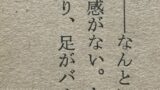 ――なんと
感がない。
り、足がバ